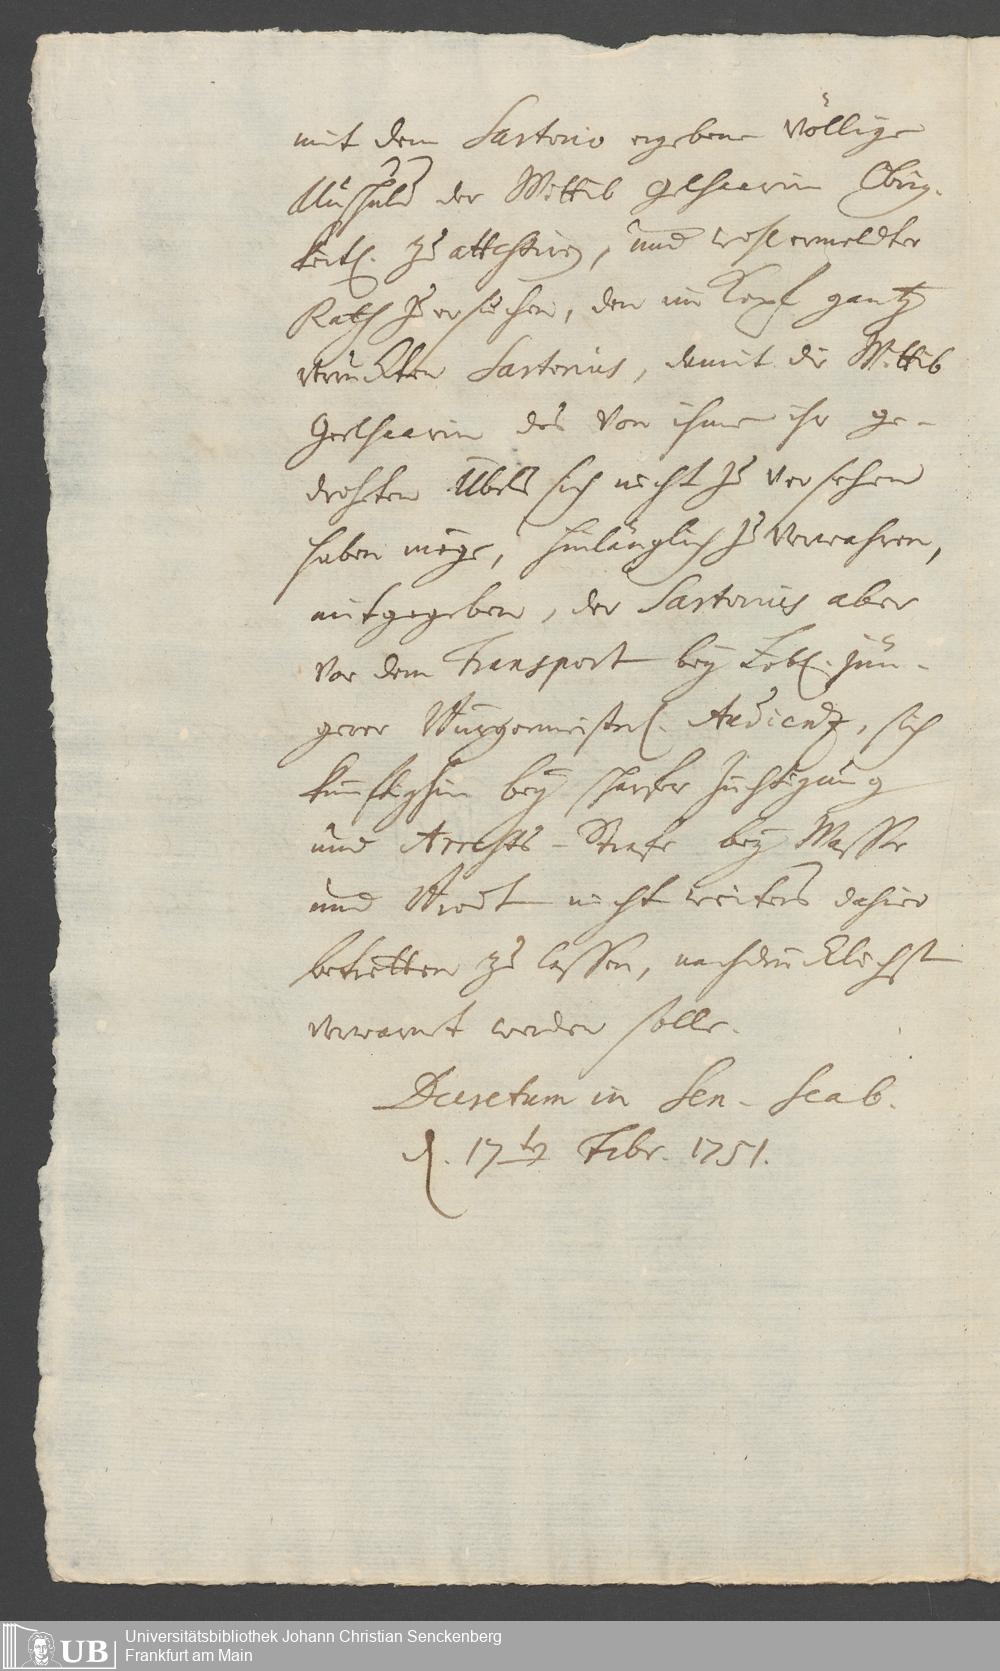 mit dem Sartorio ergebene völlige
Unschuld der Wittib Gelhaarin Obrig-
keitl. zu attestiren, und wohlermeldter
Rath zu ersuchen, den im Kopf gantz
verruckten Sartorius, damit die Wittib
Geelhaarin des von ihme ihr ge-
droheten Übels sich nicht zu versehen
haben möge, hinlänglich zu verwahren,
mitgegeben, der Sartorius aber
vor dem Transport bey Löbl. jün-
gerer Burgermeisterl. Audientz, sich
künftighin bey scharfer Züchtigung
und Arrests-Strafe bey Wasser
und Brodt nicht weiters dahier
betretten zu lassen, nachdrücklichst
verwarnt werden solle.
Decretum in Sen. Scab.
d. 17ten Febr. 1751.
UB Universitätsbibliothek Johann Christian Senckenberg
Frankfurt am Main